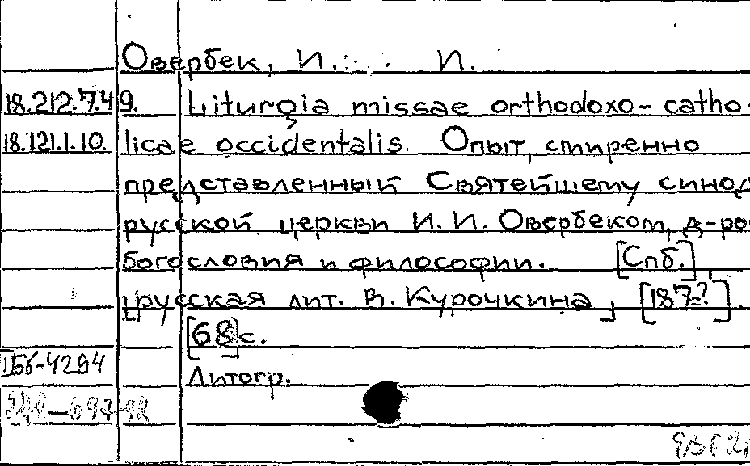 Овербек, И. И.
18.212.7.49. Liturgia missae orthodoxo-catho-
18.121.1.10. licae occidentalis. Опыт, смиренно
представленный Святейшему синоду
русской церкви И. И. Овербеком, д-ром
богословия и философии. [Спб.],
[русская лит. В. Курочкина], [187-?].
[68] с.
Литогр.